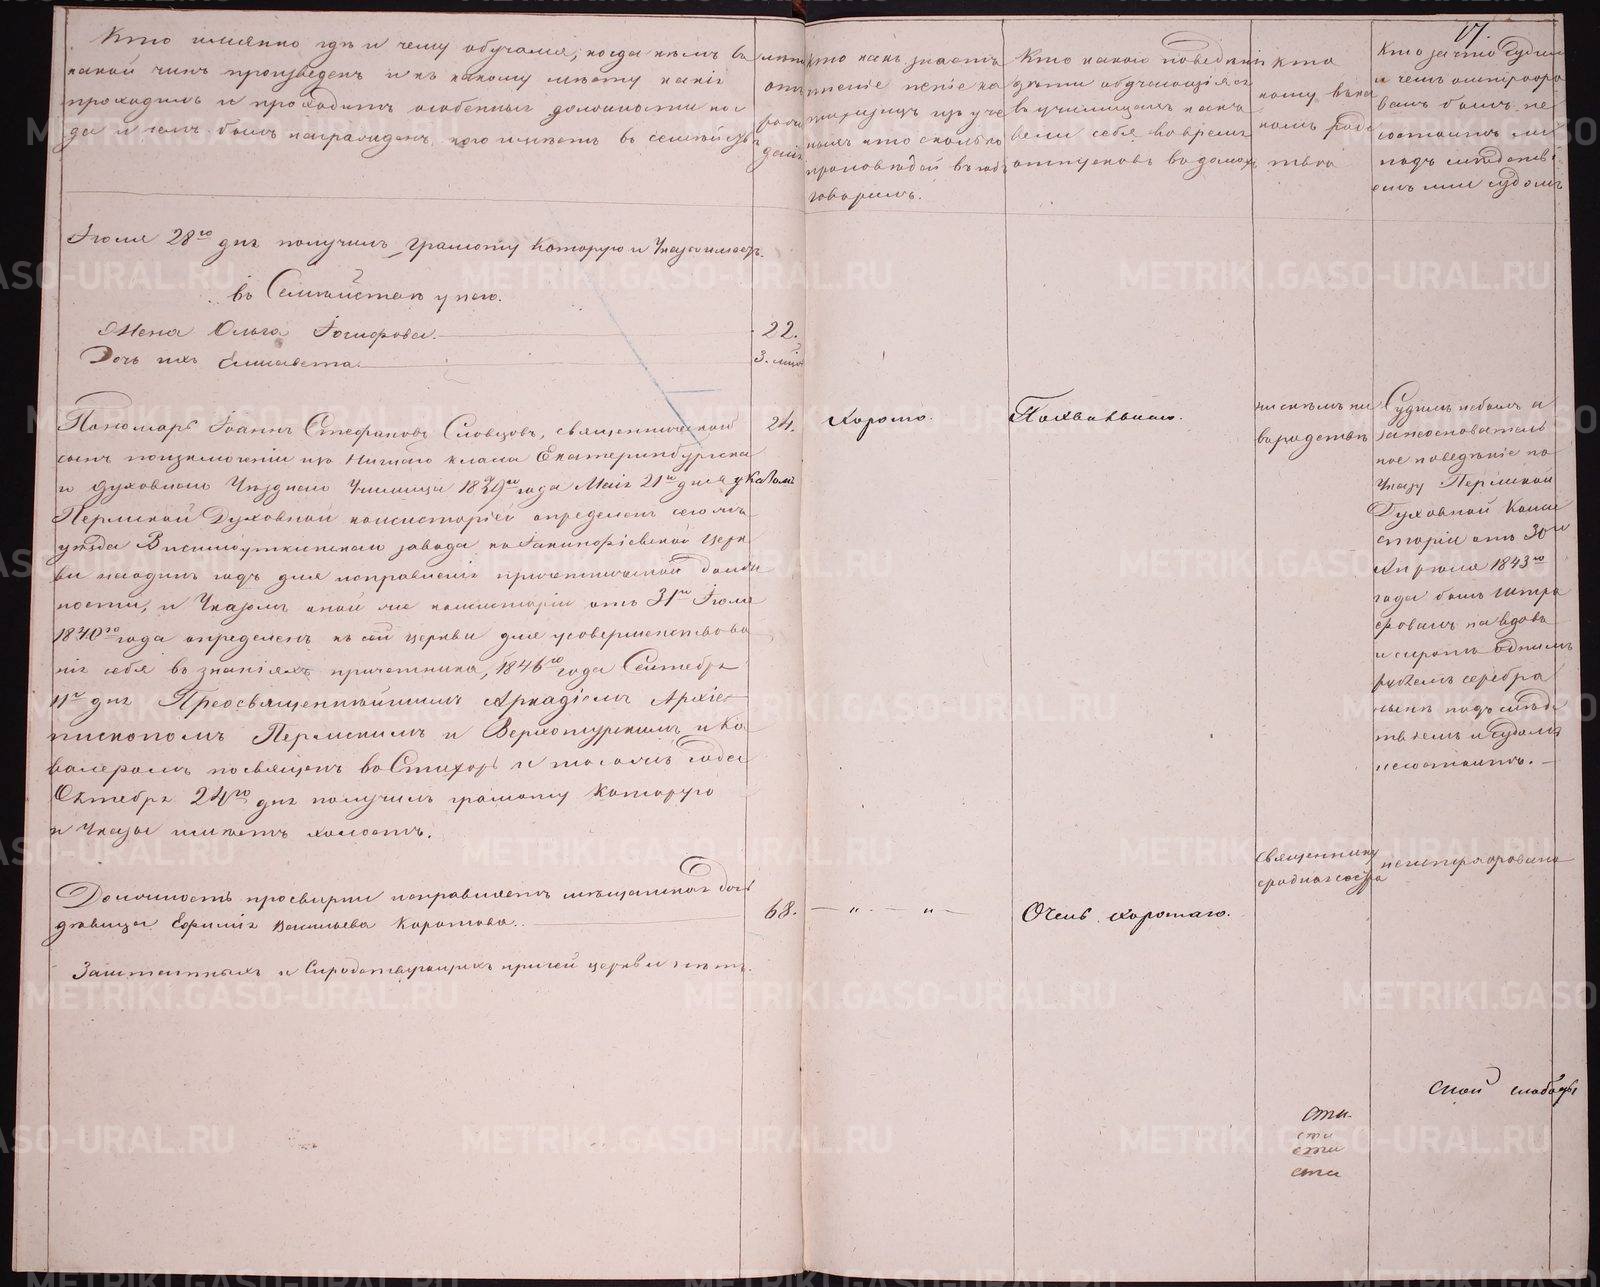 Кто имянно где и чему обучался, когда кѣмъ въ
какой чинъ произведенъ и къ какому мѣсту какiя
проходилъ и проходитъ особенныя должности ког
да и чемъ былъ награжденъ, кого имѣетъ въ семействѣ
лѣта
отъ
рож
денiя
Кто какъ знаетъ
чтенiе пенiе ка
тихизисъ изъ уче
ныхъ кто сколько
проповѣдей въ годъ
говорилъ.
Кто какого поведенiя
дѣти обучающiяся
въ училищахъ како
вели себя во время
отпусковъ въ домахъ
Кто
кому въ ка
комъ род
ствѣ
17.
Кто за что судим
и чемъ оштрафо
ванъ былъ не
состоитъ ли
подъ следств
емъ или судомъ
Iюля 28го дня получилъ грамоту которую и Указъ имѣетъ.
въ Семействѣ у него.
Жена Ольга Iосифова. 22.
Дочь ихъ Елисавета. 3.
Пономарь Iоаннъ Стефановъ Словцовъ, священническiй
сынъ поизключенiи изъ Низшаго класса Екатеринбургска
го Духовнаго Уѣзднаго Училища 1839го года Маiя 21го дня указомъ
Пермской Духовной консисторiей определенъ сего жъ
уѣзда Висимоуткинскаго завода ко церк
ви наодинъ годъ для исправленiя причетнической долж
ности, и Указомъ оной же консисторiи отъ 31го Iюля
1840го года определенъ къ сей церкви для усовершенствова
нiя себя въ знанiяхъ причетника, 1846го года Сентября
11го дня Преосвященнѣйшимъ Аркадiемъ Архiе
пископомъ Пермскимъ и Верхотурскимъ и Ка
валеромъ посвященъ въ Стихарь и тогожъ года
Октября 24го дня получилъ грамоту которую
и Указы имѣетъ холостъ.
24.
Хорошо.
Похвальнаго.
ни съ кѣмъ не
въ родствѣ
Судимъ небылъ а
за неосновательн
ное поведѣнiе по
Указу Пермской
Духовной Конси
сторiи отъ 30го
Апреля 1843го
года былъ штра
фованъ на вдовъ
и сиротъ однимъ
рублемъ серебра
нынѣ подъ слѣдс
твiемъ и судомъ
несостоитъ.
Должность просвирни исправляетъ мѣщанская дочь
дѣвица Ефимiя Васильева Коротова.
68.
— „ — „ —
Очень хорошаго.
священнику
сродная сестра
нештрафована
Заштатныхъ и Сиротствующихъ присей церкви нѣтъ.
Сной слободы
сти.
сти
сти
сти
METRIKI.GASO-URAL.RU